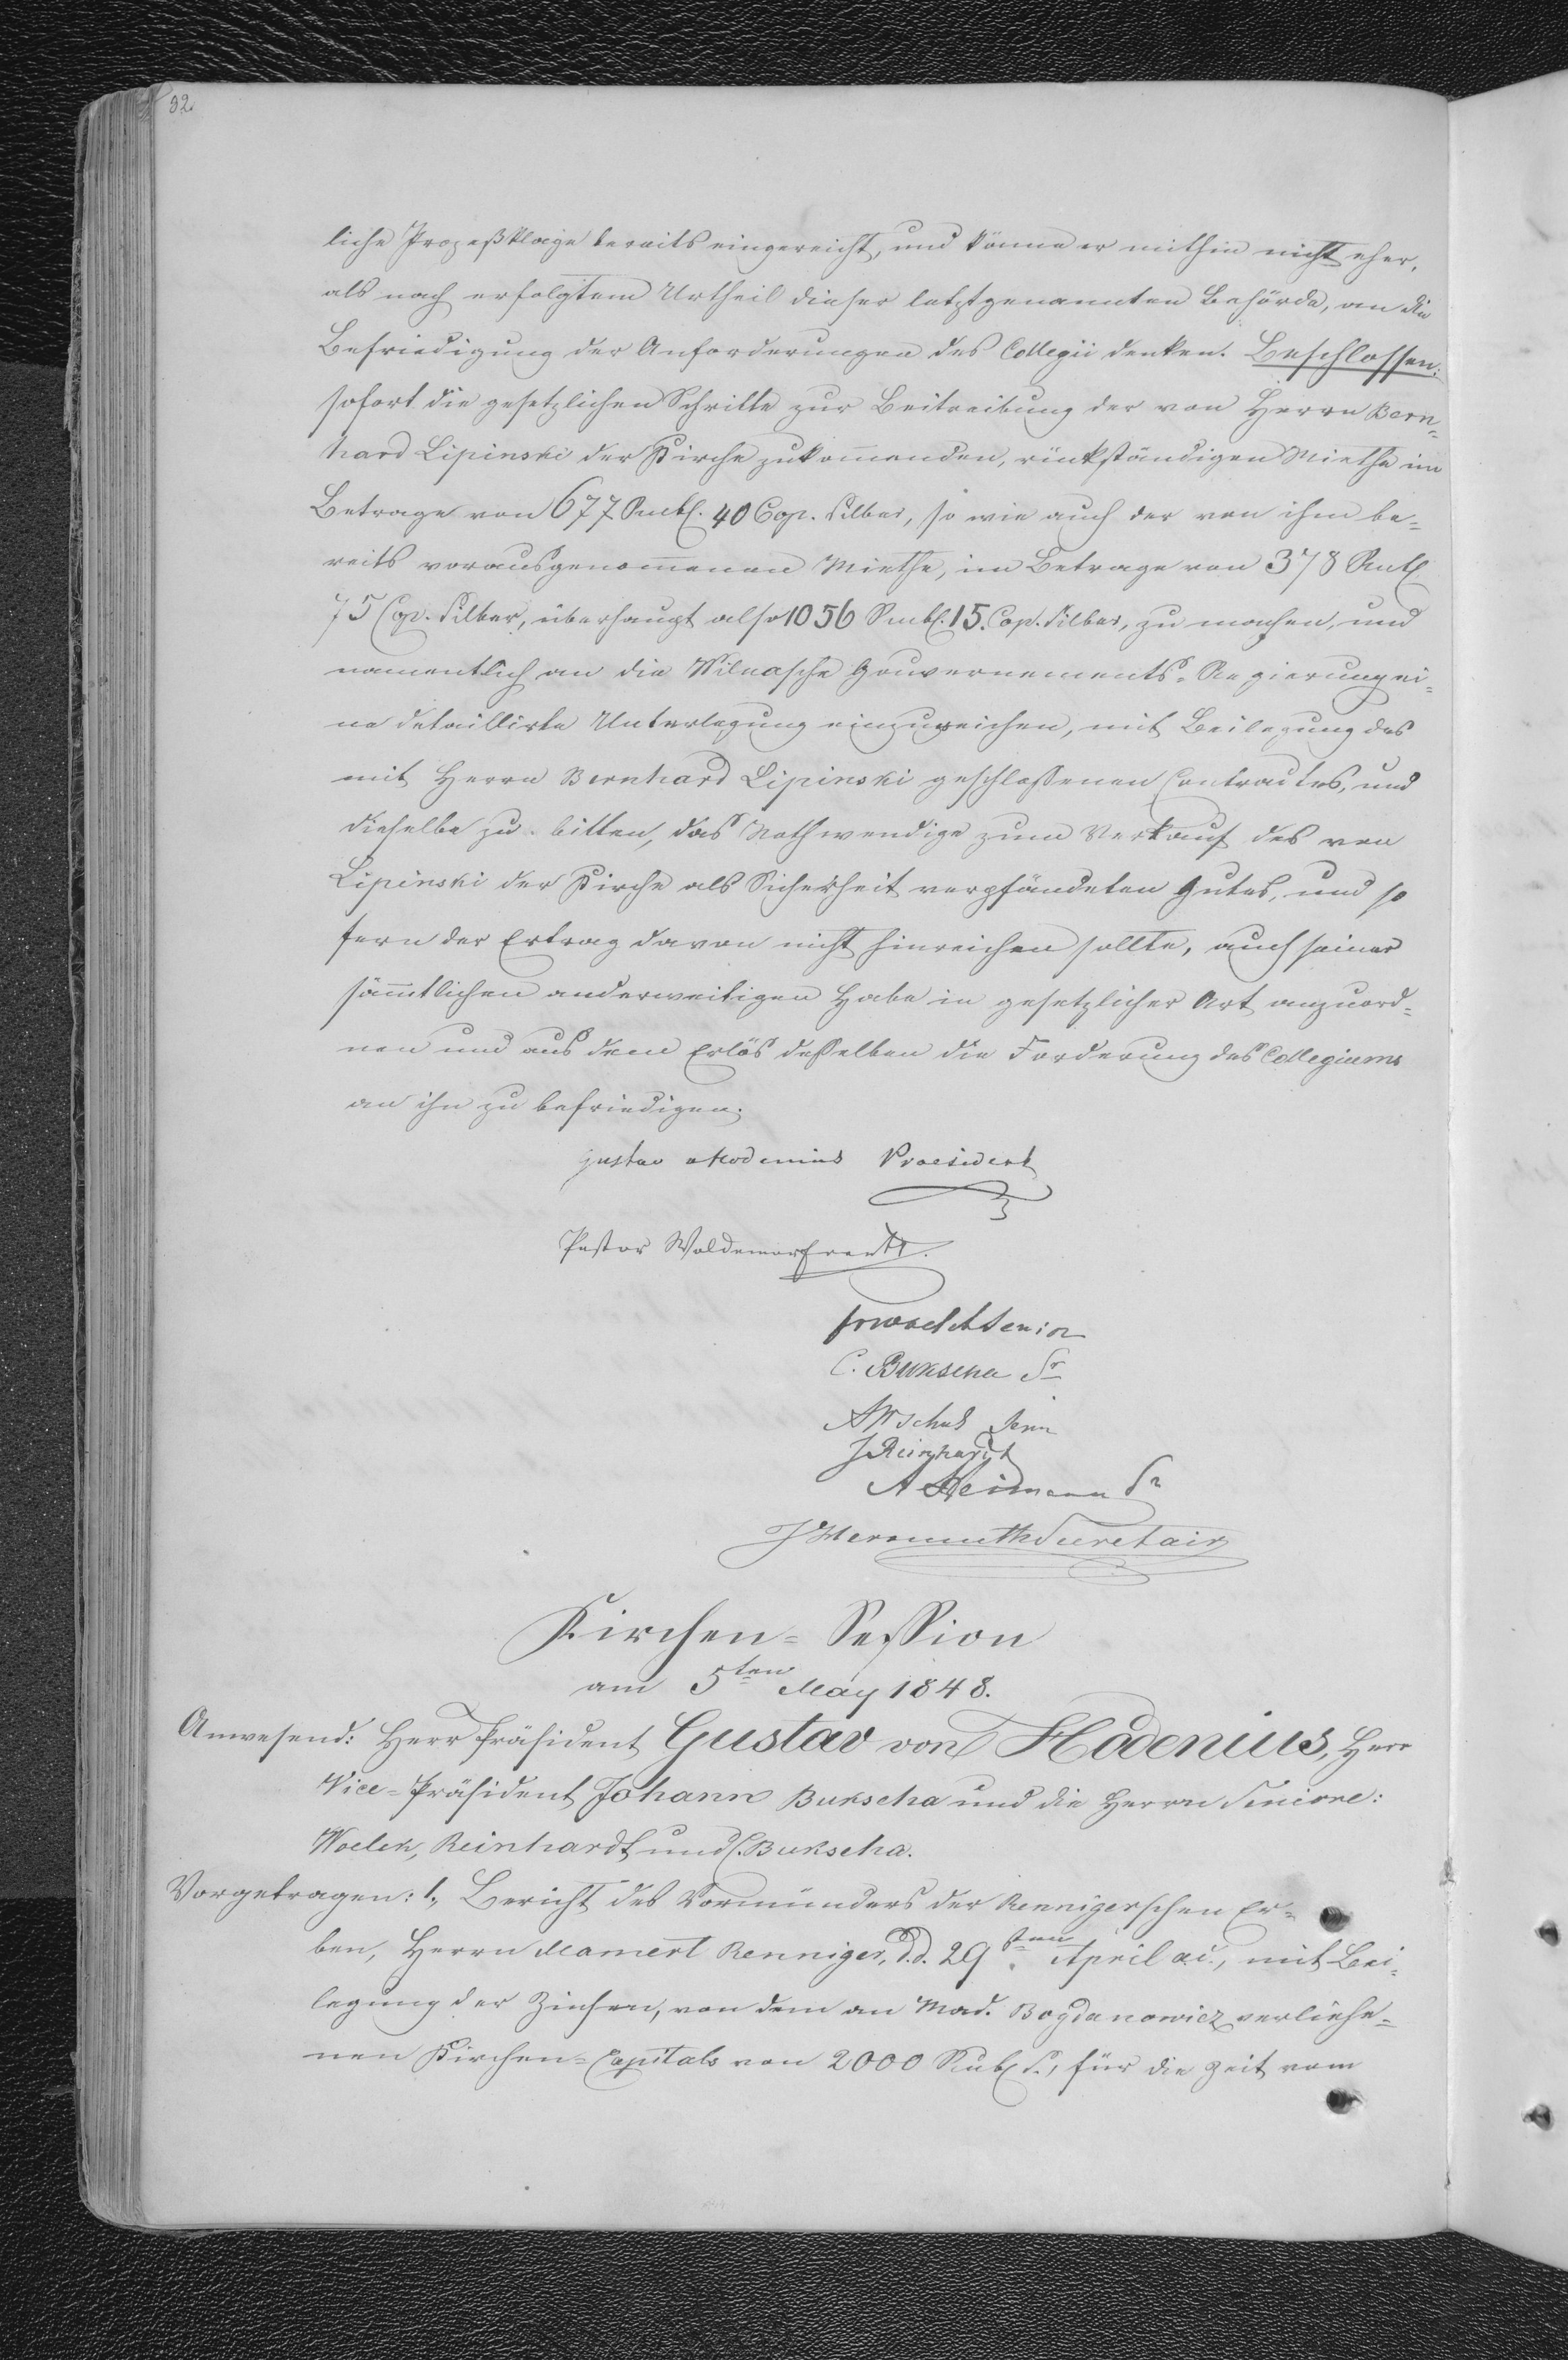 32.
liche Prozeßklage bereits eingereicht, und könne er mithin nicht eher,
als nach erfolgtem Urtheil dieser letztgenannten Behörde, an die
Befriedigung der Anforderungen des Collegii denken. Beschlossen:
sofort die gesetzlichen Schritte zur Beitreibung der von Herrn Bern=
hard Lipinski der Kirche zukom̅enden, rückständigen Miethe im
Betrage von 677 Rubl. 40 Cop. Silber, so wie auch der von ihm be=
reits vorausgenom̅enen Miethe, im Betrage von 378 Rubl.
75 Cop. Silber, überhaupt also 1056 Rubl. 15. Cop. Silber, zu machen, und
namentlich an die Wilnasche Gouvernements=Regierung ei=
ne detaillirte Unterlegung einzureichen, mit Beilegung des
mit Herrn Bernhard Lipinski geschlossenen Contractes, und
dieselbe zu bitten, das Nothwendige zum Verkauf des von
Lipinski der Kirche als Sicherheit verpfändeten Gutes, und so
fern der Ertrag davon nicht hinreichen sollte, auch seiner
säm̅tlichen anderweitigen Habe in gesetzlicher Art anzuord=
nen und aus dem Erlös desselben die Forderung des Collegiums
an ihn zu befriedigen.
Gustav v Hodenius Praesident
Pastor Woldemar
Senior
C. Bukscha Sr
Senr
J Reinhardt
A Heimann Sr
J Wermuth Secretair
Kirchen=Session
am 5ten May 1848.
Anwesend: Herr Präsident Gustav von Hodenius, Herr
Vice=Präsident Johann Bukscha und die Herrn Seniore:
Woelck, Reinhardt und C. Bukscha.
Vorgetragen: 1., Bericht des Vormünders der Rennigerschen Er=
ben, Herrn Mamert Renniger, d.d. 29sten April a.c., mit Bei=
legung der Zinsen, von dem an Mad. Bogdanowicz verliehe=
nen Kirchen=Capitals von 2000 Rubl. S., für die Zeit vom